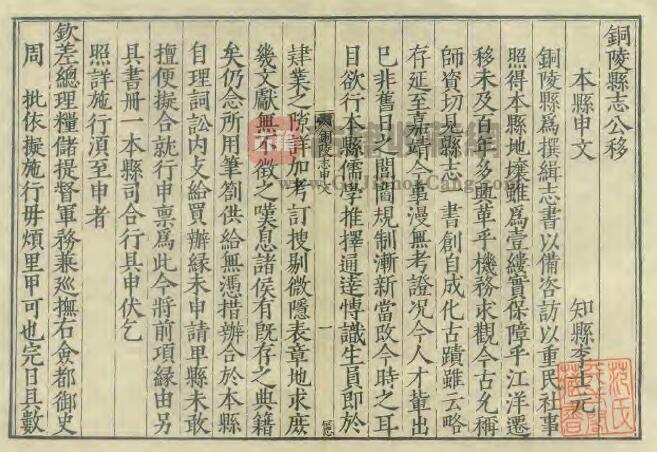 銅陵縣志公移
本縣申文
知縣李士元
銅陵縣爲撰緝志書以備咨訪以重民社事
照得本縣地壤雖爲壹縷實保障乎江洋遷
移未及百年多興革乎機務求觀今古允稱
師資切縣志一書創自成化古蹟雖云略
存延至嘉靖今事漫無考證況今人才輩出
已非舊日之閭閻規制漸新當改今時之耳
目欲行本縣儒學推擇通達博識生員即於
肄業之隙詳加考訂搜剔微隱表章地求庶
幾文獻無徵之嘆息諸侯有旣存之典籍
矣仍念所用筆劄供給無憑措辦合於本縣
自理詞訟內支給買辦緣未申請卑縣未敢
擅便擬合就行申稟爲此今將前項緣由另
具書冊一本縣司合行具申伏乞
照詳施行湏至申者
欽差總理糧儲提督軍務兼廵撫右僉都御史
周 批依擬施行毋煩里甲可也完日具數
銅陵志申文
一
范氏天一閣藏書
古籍